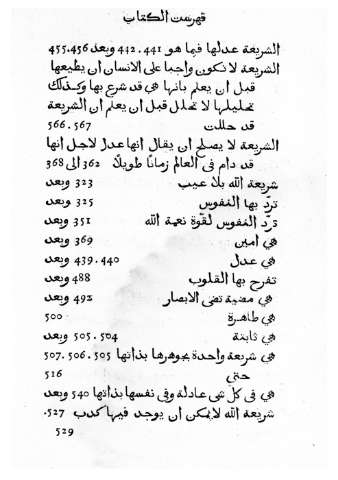 فهرست الكتاب
الشريعة عدلها فيما هو 441 . 442 وبعد 455 . 456
الشريعة لا تكون واجبا على الانسان ان يطيعها
قبل ان يعلم بانها هي قد شرع بها وكذلك
تحليلها لا تحلل قبل ان يعلم ان الشريعة
قد حللت 567 . 566
الشريعة لا يصلح ان يقال انها عدل لاجل انها
قد دام فى العالم زمانًا طويلاً 362 الى 368
شريعة الله بلا عيب 323 وبعد
تردّ بها النفوس 325 وبعد
تردّ النفوس لقوّة نعمة الله 351 وبعد
هي امين 369 وبعد
هي عدل 440 . 439 وبعد
تفرح بها القلوب 488 وبعد
هي مضية تضى الابصار 492 وبعد
هي طاهرة 500
هي ثابتة 504 . 505 وبعد
هي شريعة واحدة بجوهرها بذاتها 505 . 506 . 507
حتي 516
هي فى كل شى عادلة وفى نفسها بذاتها 540 وبعد
شريعة الله لايمكن ان يوجد فيها كذب 527 .
529